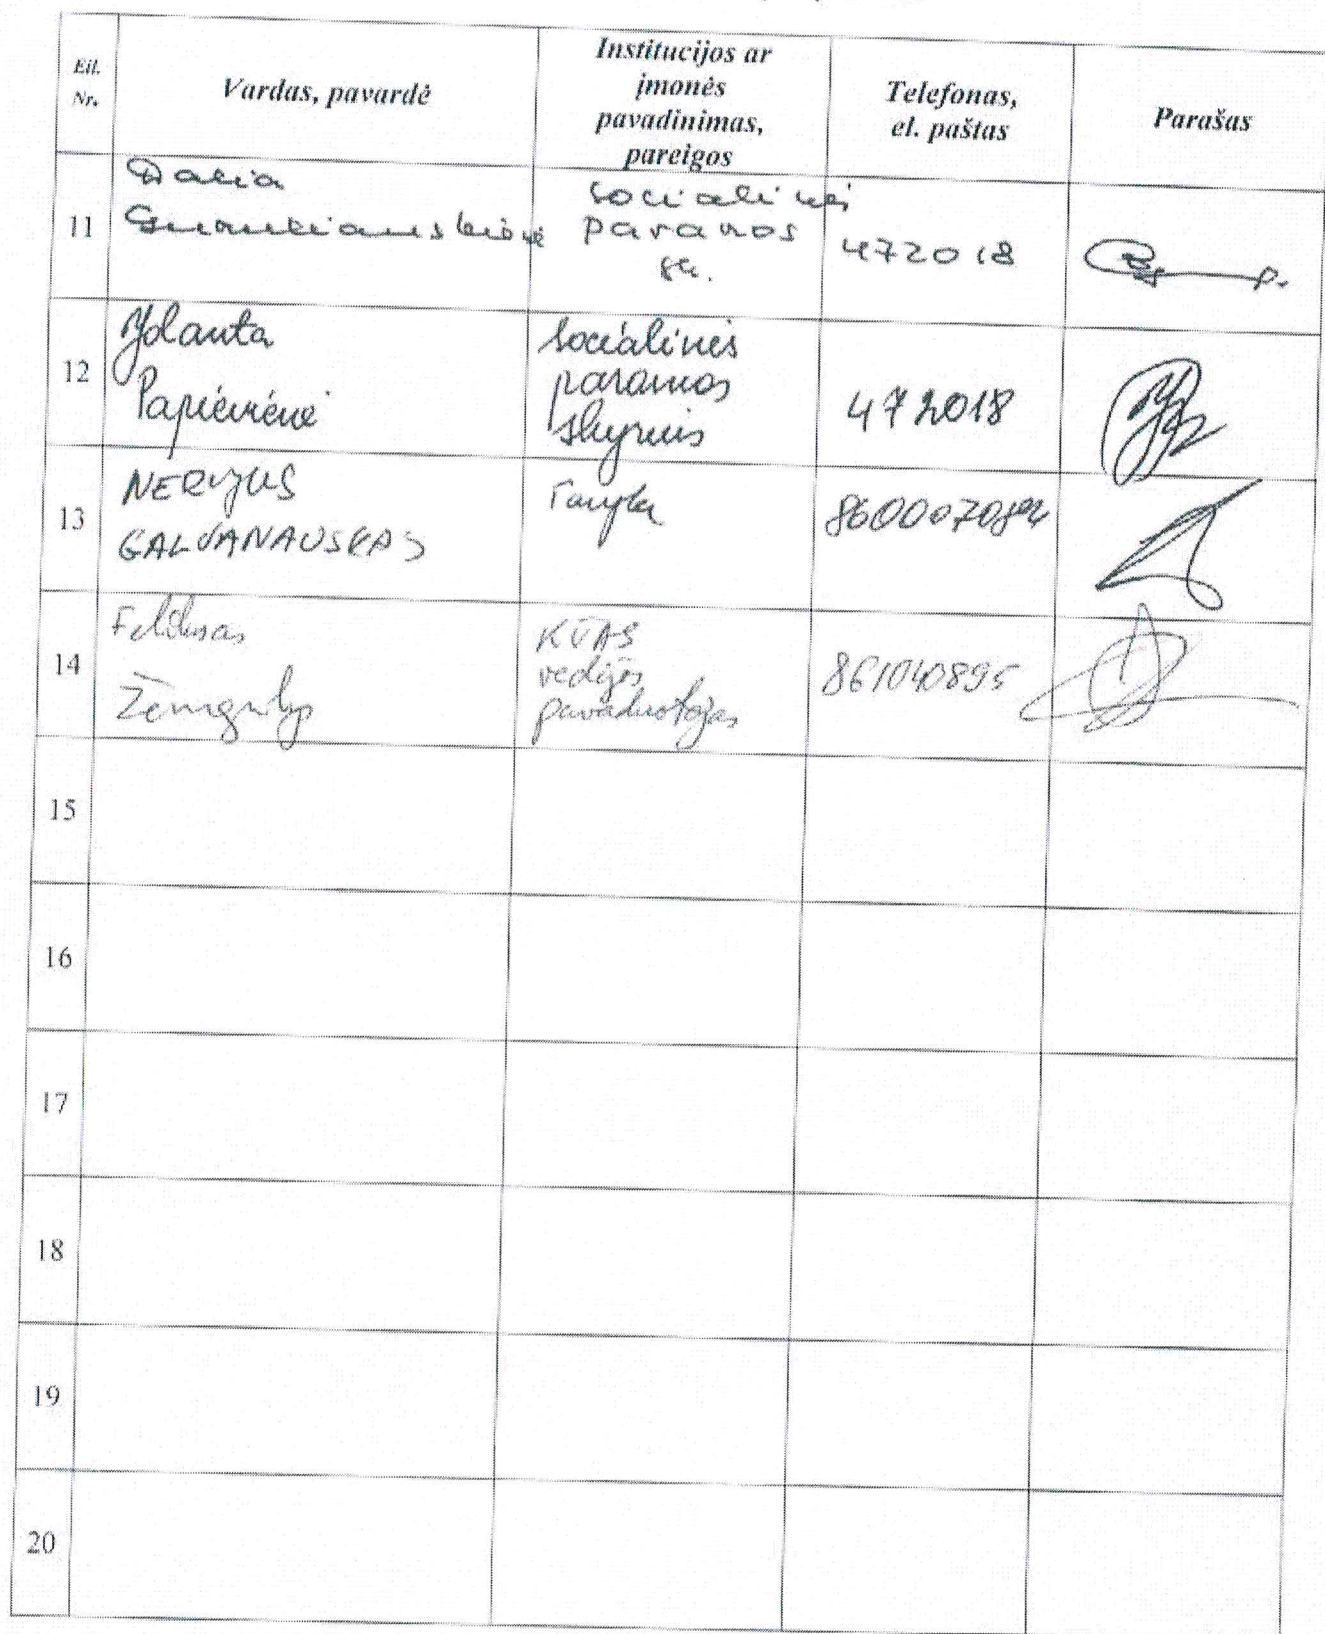 Eil.
Nr.
Vardas, pavardė
Institucijos ar
įmonės
pavadinimas,
pareigos
Telefonas,
el. paštas
Parašas
11
Dalia
socialinės
paramos
sk.
472018
12
Jolanta
Papievienė
socialinės
paramos
skyrius
472018
13
NERIJUS
GALVANAUSKAS
Taryba
14
Feliksas
Žemgulys
KŪAS
vedėjos
pavaduotojas
861040895
15
16
17
18
19
20